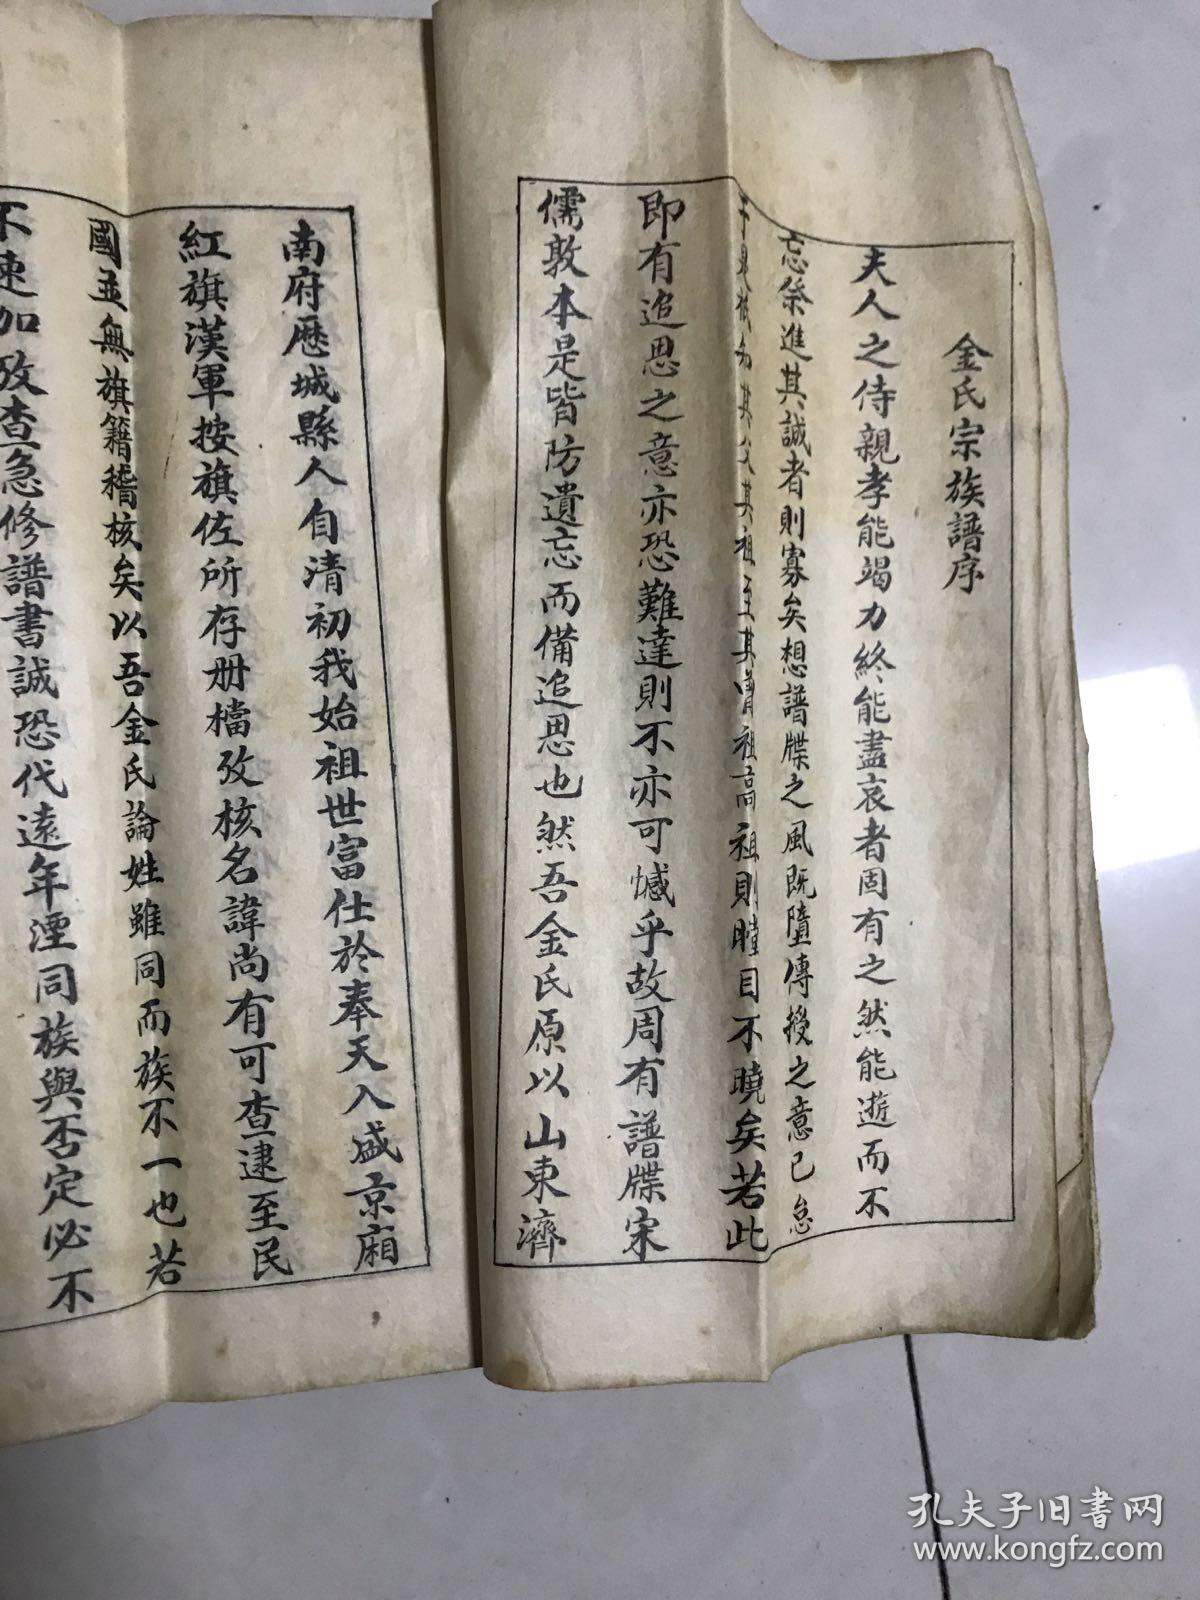 金氏宗族譜序
夫人之侍親孝能竭力終能盡哀者固有之然能逝而不
忘祭進其誠者則寡矣想譜牒之風既墮傳授之意已怠
知其父其祖至其曾祖高祖則瞠目不曉矣若此
即有追思之意亦恐難達則不亦可憾乎故周有譜牒宋
儒敦本是皆防遺忘而備追思也然吾金氏原以山東濟
南府歷城縣人自清初我始祖世富仕於奉天入盛京廂
紅旗漢軍按旗佐所存册檔攷核名諱尚有可查逮至民
國並無旗籍稽核矣以吾金氏論姓雖同而族不一也若
不速加攷查急修譜書誠恐代遠年湮同族與否定必不
孔夫子旧书网
www.kongfz.com